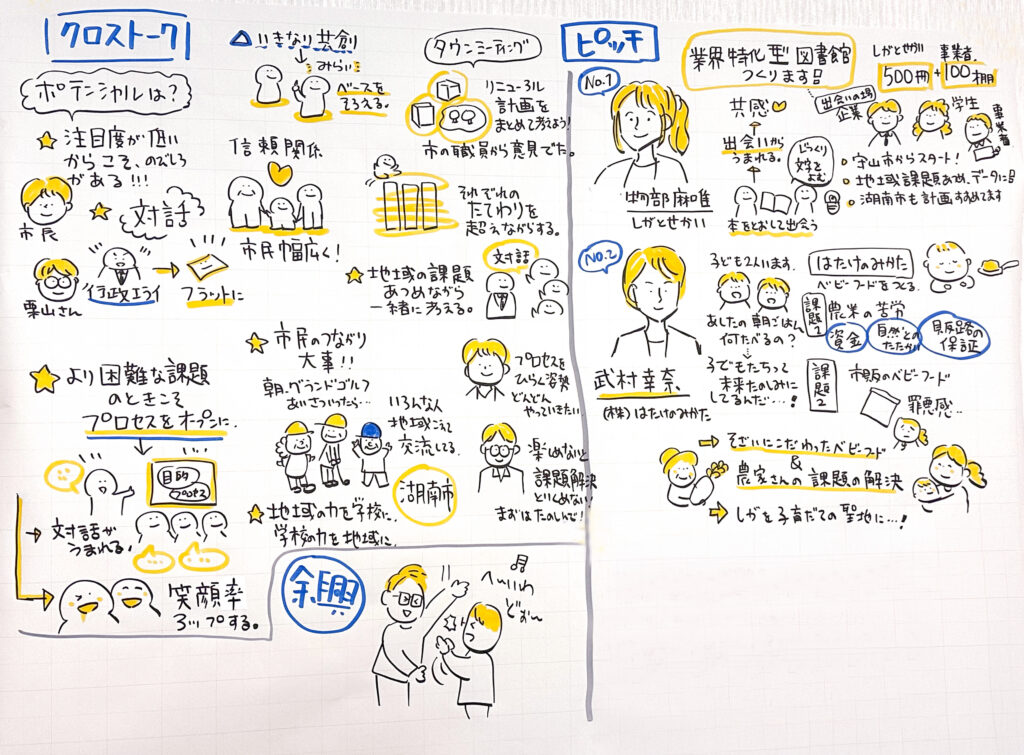 クロストーク
ポテンシャルは?
注目度が低い
からこそ、のびしろ
がある!!!
市民
対話
栗山さん
行政エライ
フラットに
より困難な課題
のときこそ
プロセスをオープンに.
目的
プロセス
対話が
うまれる!
笑顔率
アップする。
いきなり共創
みらい
ベースを
そろえる。
信頼関係
市民幅広く!
タウンミーティング
リニューアル
計画を
まとめて考えよう!
市の職員から意見でた。
それぞれの
たてわりを
超えながらする。
地域の課題
あつめながら
一緒に考える。
対話
市民のつながり
大事!!
朝、グランドゴルフ
あいさついったら…
いろんな人
地域こえて
交流してる
湖南市
地域の力を学校に、
学校の力を地域に、
プロセスを
ひらく姿勢
どんどん
やっていきたい
楽しめないと
課題解決
といえない
まずはたのしんで!
余興
へいわ
どぉ〜ん
ピッチ
No.1
業界特化型図書館
つくります!!
しがとせかい
500冊
+
事業者.
100棚
共感
出会いから
うまれる。
本をとおして出会う
じっくり
文字を
よむ
出会いの場
企業
学生
・守山市からスタート!
・地域課題あつめ、データに!!
・湖南市も計画すすめてます
麻唯
しがとせかい
No.2
武村幸奈
(株)はたけのみかた
子ども2人います.
あしたの朝ごはん
何たべるの?
子どもたちって
未来たのしみに
してるんだ…!
はたけのみかた
ベビーフードをつくる.
課題1
農業の苦労
資金
自然との
たたかい
販路の
保証
課題2
市販のベビーフード
罪悪感…
そざいにこだわったベビーフード
&
農家さんの課題の解決
しがを子育ての聖地に…!